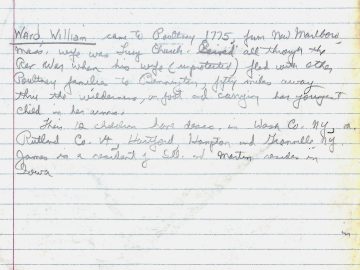 Ward William came to Poultney 1775, from New Marlboro
Mass. wife was Lucy Church. Served all through the
Rev War when his wife (unprotected) fled with other
Poultney families to Bennington, fifty miles away
thru the wilderness, on foot and carrying her youngest
child in her arms.
Their 12 children have descs. in Wash Co. NY, in
Rutland Co. Vt, Hartford, Hampton and Granville NY.
James is a resident of Ill. and Martin resides in
Iowa